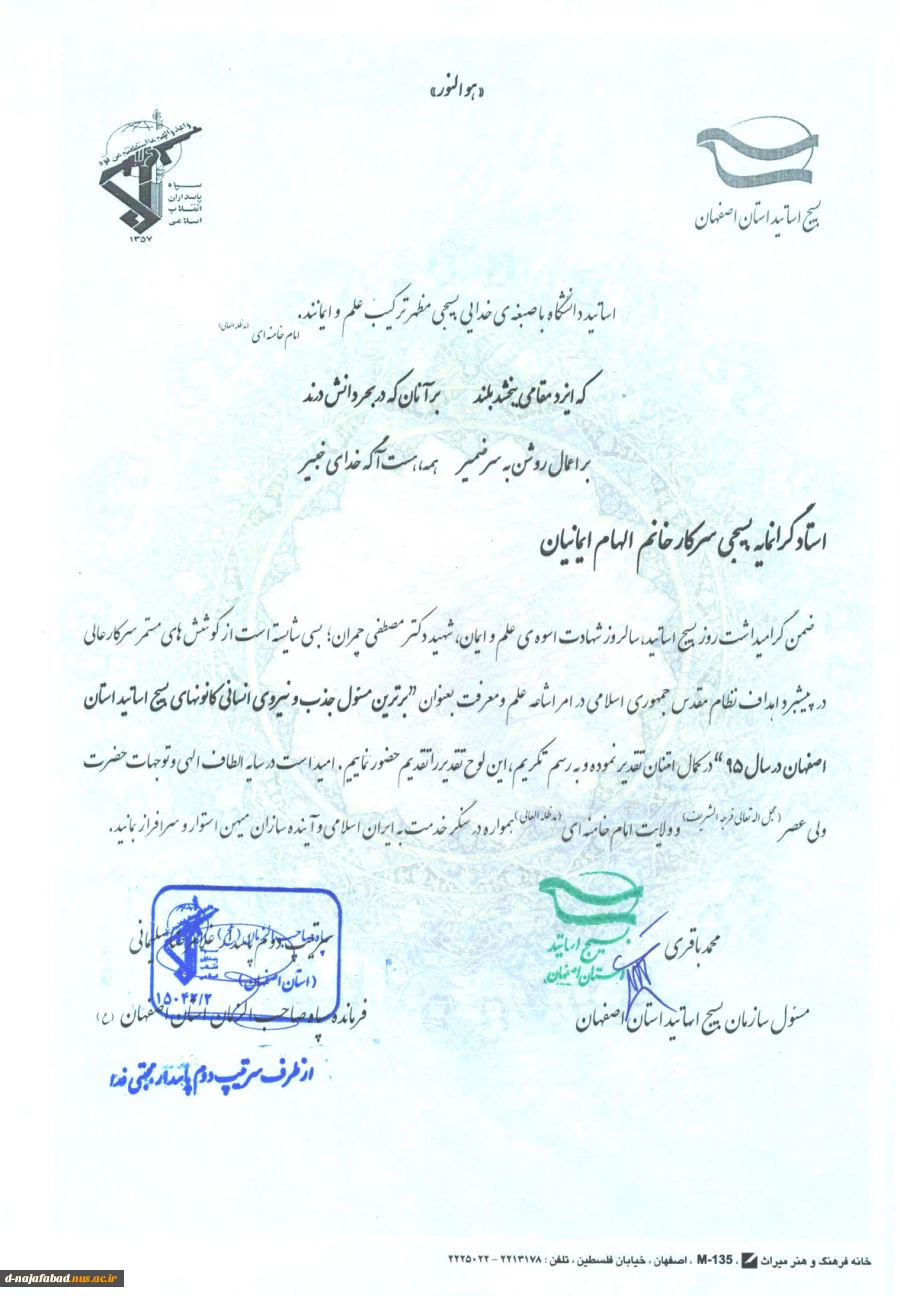 «هو النور»
واعدوا لهم ما استطعتم من قوه
سپاه
پاسداران
انقلاب
اسلامی
۱۳۵۷
بسیج اساتید استان اصفهان
اساتید دانشگاه با صبغه ی خدایی بسیجی مظهر ترکیب علم و ایمانند.
امام خامنه ای (مدظله العالی)
که ایزد مقامی ببخشد بلند برآنان که در بحر دانش درند
بر اعمال روشن به سر ضمیر همه، هست آگه خدای خبیر
استاد گرانمایه بسیجی سرکار خانم الهام ایمانیان
ضمن گرامیداشت روز بسیج اساتید، سالروز شهادت اسوه ی علم و ایمان، شهید دکتر مصطفی چمران؛ بسی شایسته است از کوشش های مستمر سرکار عالی
در پیشبرد اهداف نظام مقدس جمهوری اسلامی در امر اشاعه علم و معرفت بعنوان "برترین مسئول جذب و نیروی انسانی کانونهای بسیج اساتید استان
اصفهان در سال ۹۵" در کمال امتنان تقدیر نموده و به رسم تکریم، این لوح تقدیر را تقدیم حضور نماییم. امید است در سایه الطاف الهی و توجهات حضرت
ولی عصر (عجل اله تعالی فرجه الشریف) و ولایت امام خامنه ای (مدظله العالی) همواره در سنگر خدمت به ایران اسلامی و آینده سازان میهن استوار و سرافراز بمانید.
محمد باقری
مسئول سازمان بسیج اساتید استان اصفهان
بسیج اساتید
استان اصفهان
سرتیپ دوم پاسدار غلامرضا سلیمانی
فرمانده سپاه صاحب الزمان استان اصفهان (عج)
(استان اصفهان)
از طرف سرتیپ دوم پاسدار مجتبی فدا
خانه فرهنگ و هنر میراث M-135 ، اصفهان ، خیابان فلسطین ، تلفن : ۲۲۱۳۱۷۸ - ۲۲۲۵۰۲۲
d-najafabad.nus.ac.ir